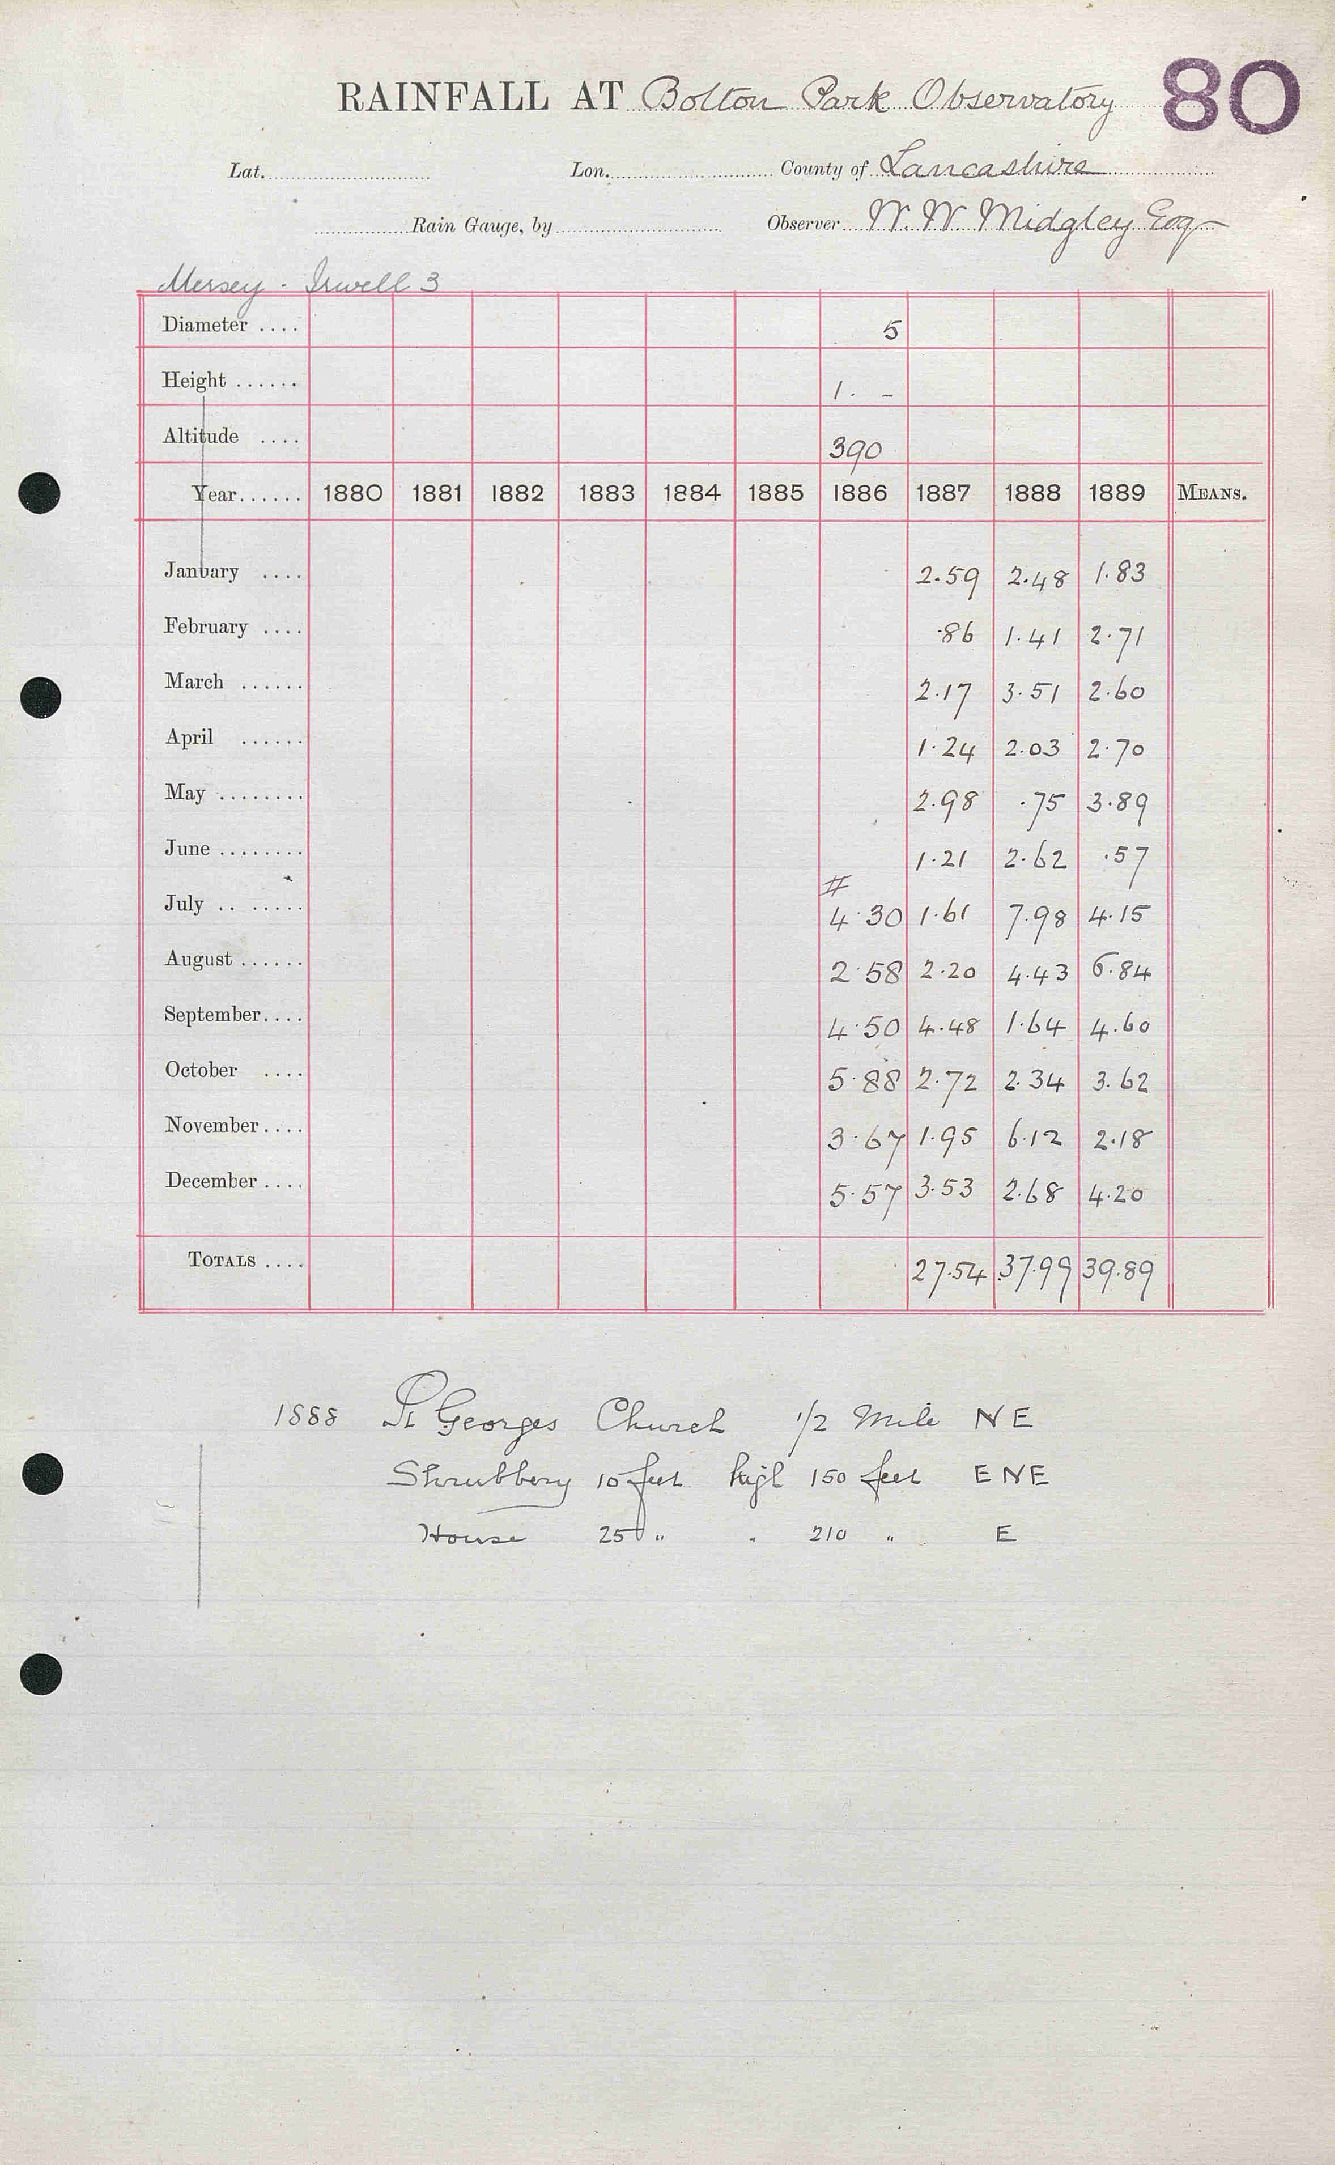 RAINFALL AT Bolton Park Observatory 80
Lat. Lon. County of Lancashire
Rain Gauge, by Observer W. W Midgley Esq
Mersey - Irwell 3
Diameter .... 5
Height ...... 1. -
Altitude .... 390
Year...... 1880 1881 1882 1883 1884 1885 1886 1887 1888 1889 MEANS.
January .... 2.59 2.48 1.83
February .... .86 1.41 2.71
March ...... 2.17 3.51 2.60
April ...... 1.24 2.03 2.70
May ........ 2.98 .75 3.89
June ........ 1.21 2.62 .57
#
July .. ..... 4.30 1.61 7.98 4.15
August ...... 2.58 2.20 4.43 6.84
September.... 4.50 4.48 1.64 4.60
October .... 5.88 2.72 2.34 3.62
November.... 3.67 1.95 6.12 2.18
December .... 5.57 3.53 2.68 4.20
TOTALS .... 27.54 37.99 39.89
1888 St Georges Church 1/2 Mile NE
Shrubbery 10 feet high 150 feet ENE
House 25 " " 210 " E